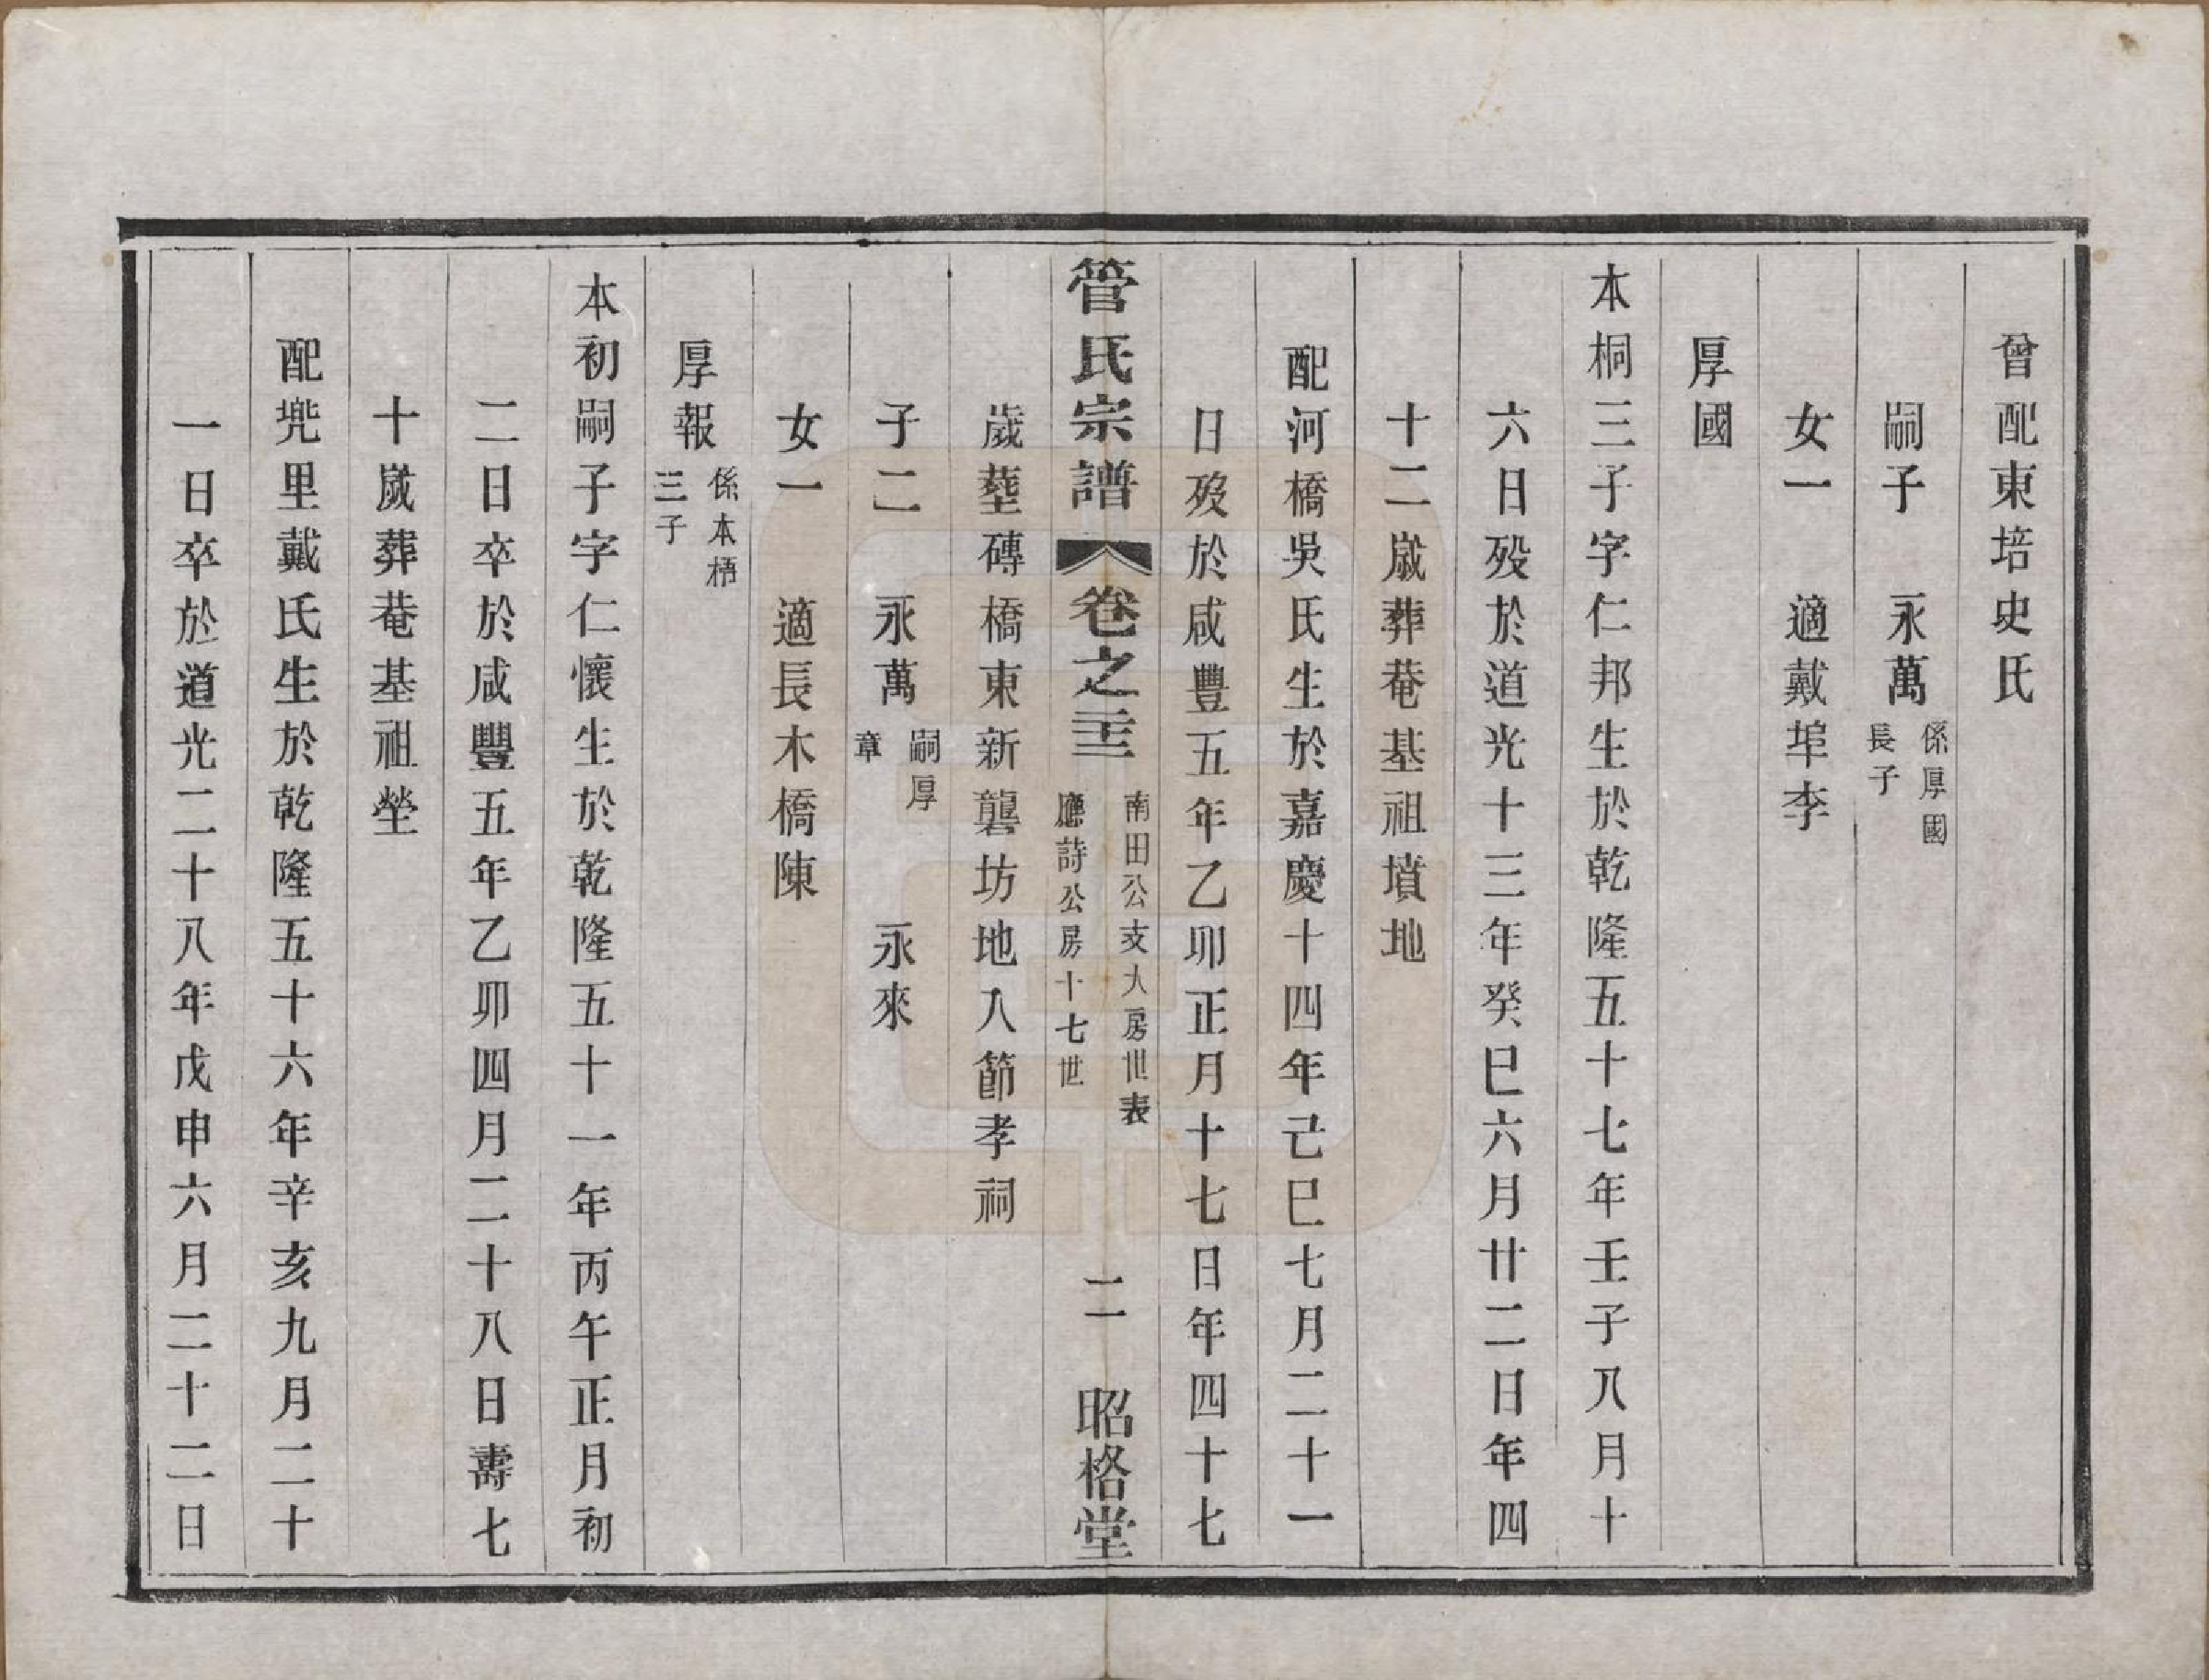 曾配東培史氏
嗣子 永萬 係厚國長子
女一 適戴埠李
厚國
本桐三子字仁邦生於乾隆五十七年壬子八月十
六日歿於道光十三年癸巳六月廿二日年四
十二歲葬菴基祖墳地
配河橋吳氏生於嘉慶十四年己巳七月二十一
日歿於咸豐五年乙卯正月十七日年四十七
管氏宗譜 卷之三 南田公支大房世表 應詩公房十七世 二 昭格堂
歲塟磚橋東新龔坊地入節孝祠
子二 永萬 嗣厚章 永來
女一 適長木橋陳
厚報 係本梧三子
本初嗣子字仁懷生於乾隆五十一年丙午正月初
二日卒於咸豐五年乙卯四月二十八日壽七
十歲葬菴基祖塋
配兠里戴氏生於乾隆五十六年辛亥九月二十
一日卒於道光二十八年戊申六月二十二日